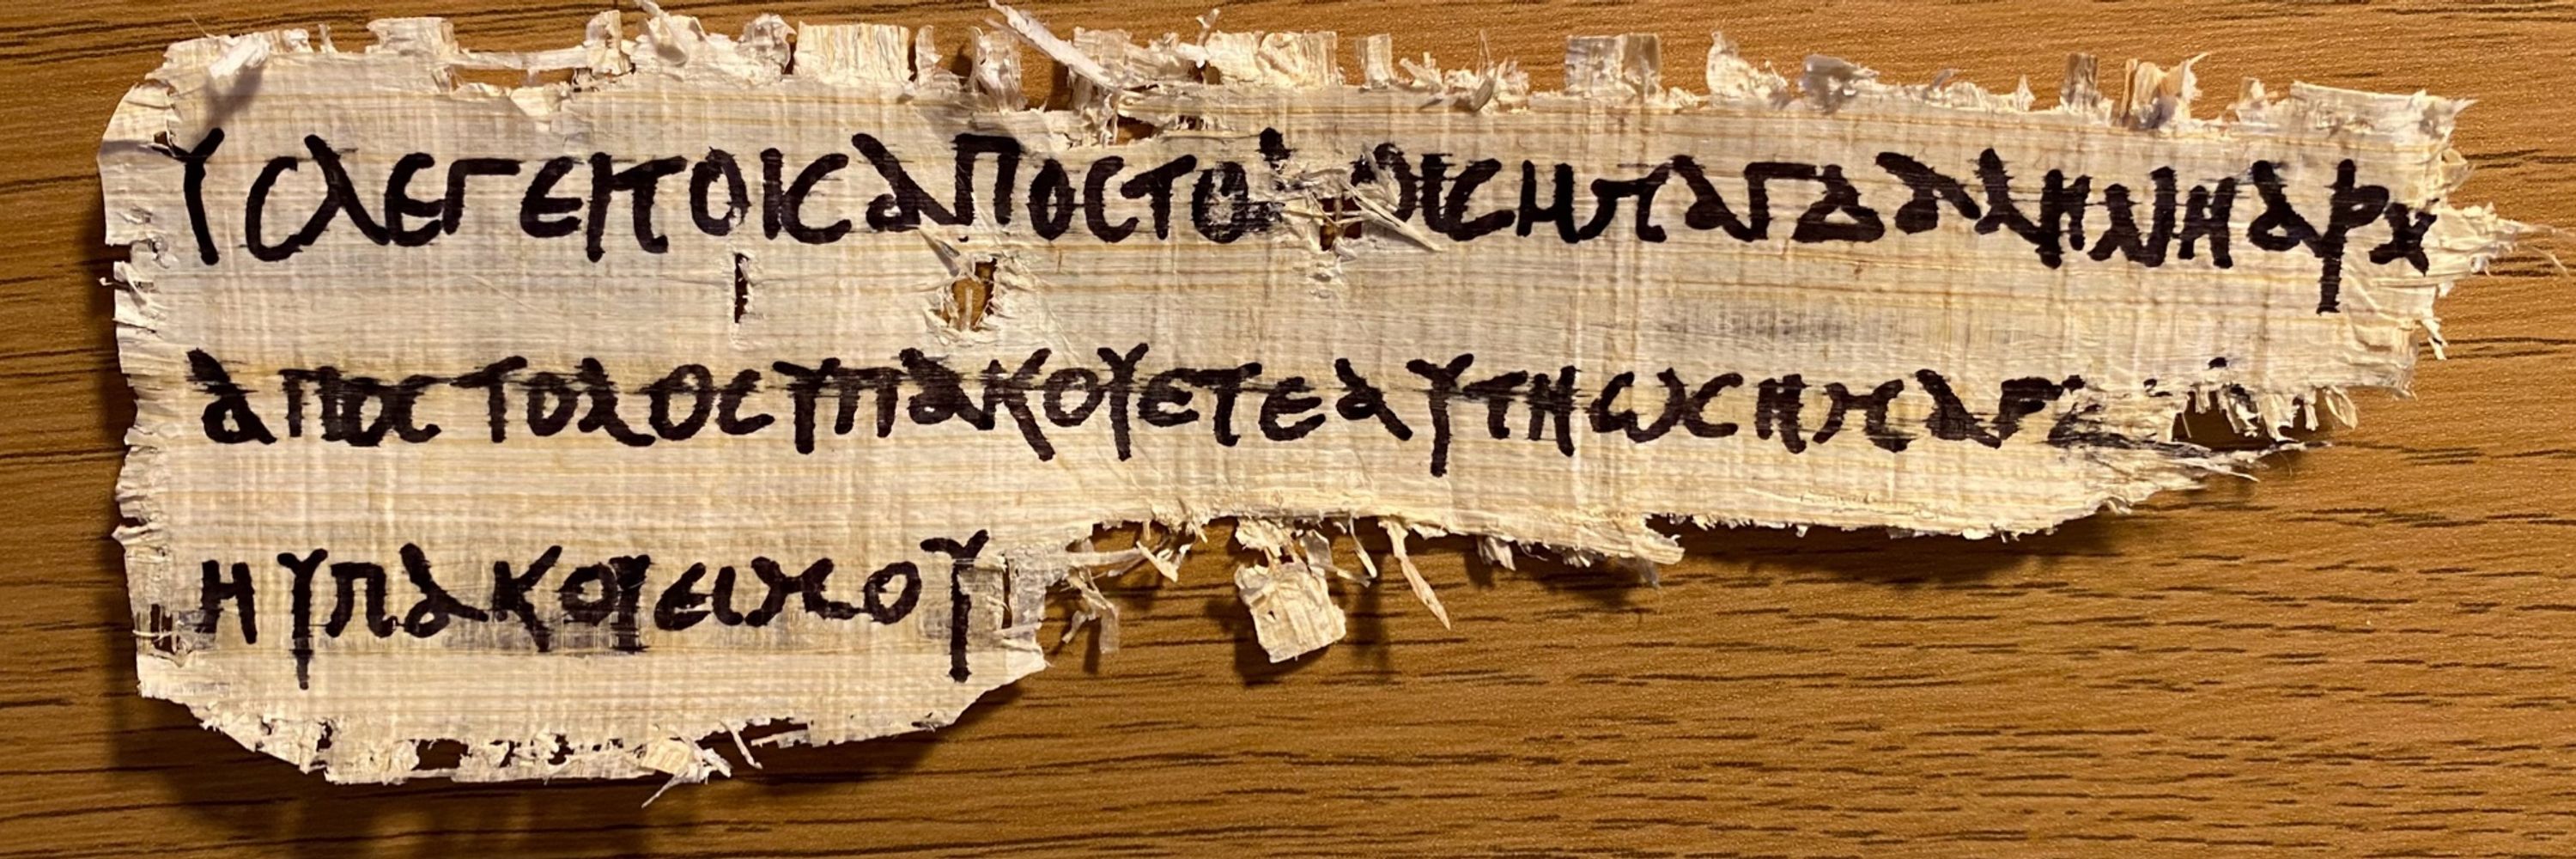 ΥϹΛΕΓΕΙΤΟΙϹΑΠΟϹΤΟΛΟΙϹΗΜΑΓΔΑΛΗΝΗΑΡΧ
ΑΠΟϹΤΟΛΟϹΥΠΑΚΟΥΕΤΕΑΥΤΗΩϹΗΜΑΓΔ
ΗΥΠΑΚΟΥΕΙΜΟΥ